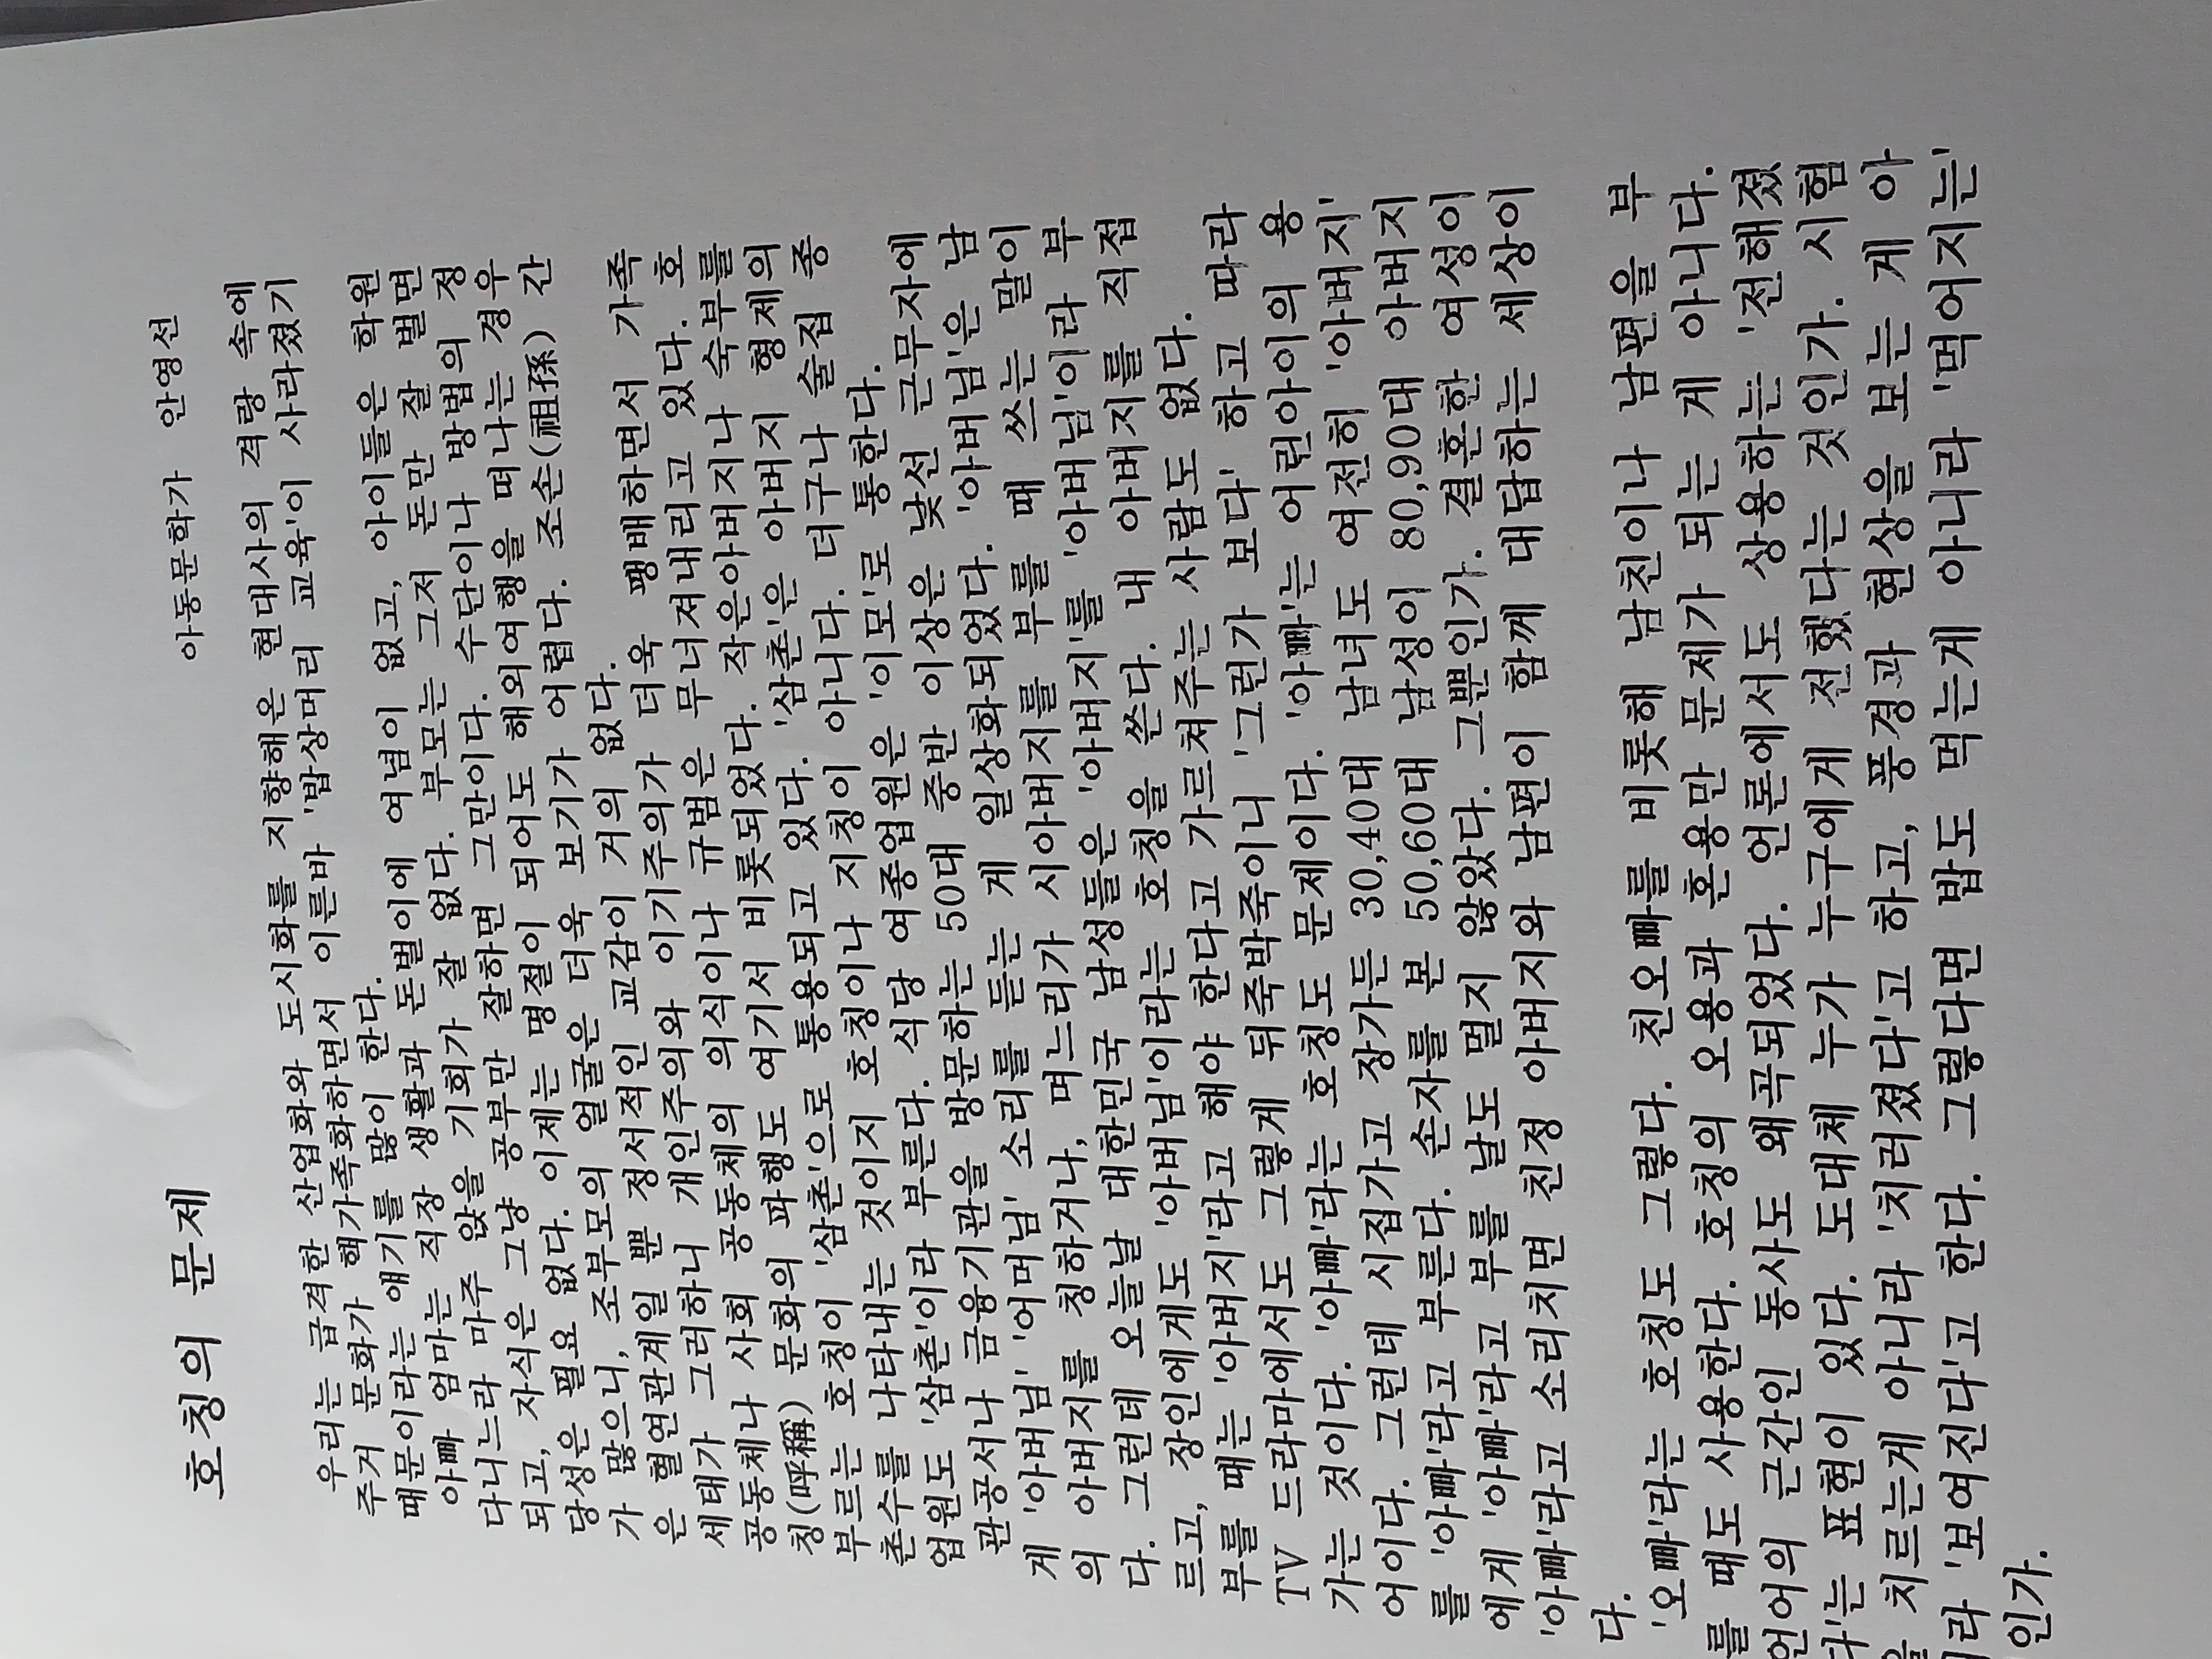 호칭의 문제
아동문학가 안영선
우리는 급격한 산업화와 도시화를 지향해온 현대사의 격랑 속에
주거 문화가 핵가족화하면서 이른바 '밥상머리 교육'이 사라졌기
때문이라는 얘기를 많이 한다.
아빠 엄마는 직장 생활과 돈벌이에 여념이 없고, 아이들은 학원
다니느라 마주 앉을 기회가 잘 없다. 부모는 그저 돈만 잘 벌면
되고, 자식은 그냥 공부만 잘하면 그만이다. 수단이나 방법의 정
당성은 필요 없다. 이제는 명절이 되어도 해외여행을 떠나는 경우
가 많으니, 조부모의 얼굴은 더욱 보기가 어렵다. 조손(祖孫) 간
은 혈연관계일 뿐 정서적인 교감이 거의 없다.
세태가 그러하니 개인주의와 이기주의가 더욱 팽배하면서 가족
공동체나 사회 공동체의 의식이나 규범은 무너져내리고 있다. 호
칭(呼稱) 문화의 파행도 여기서 비롯되었다. 작은아버지나 숙부를
부르는 호칭이 '삼촌'으로 통용되고 있다. '삼촌'은 아버지 형제의
촌수를 나타내는 것이지 호칭이나 지칭이 아니다. 더구나 술집 종
업원도 '삼촌'이라 부른다. 식당 여종업원은 '이모'로 통한다.
관공서나 금융기관을 방문하는 50대 중반 이상은 낯선 근무자에
게 '아버님' '어머님' 소리를 듣는 게 일상화되었다. '아버님'은 남
의 아버지를 칭하거나, 며느리가 시아버지를 부를 때 쓰는 말이
다. 그런데 오늘날 대한민국 남성들은 '아버지'를 '아버님'이라 부
르고, 장인에게도 '아버님'이라는 호칭을 쓴다. 내 아버지를 직접
부를 때는 '아버지'라고 해야 한다고 가르쳐주는 사람도 없다.
TV 드라마에서도 그렇게 뒤죽박죽이니 '그런가 보다' 하고 따라
가는 것이다. '아빠'라는 호칭도 문제이다. '아빠'는 어린아이의 용
어이다. 그런데 시집가고 장가든 30,40대 남녀도 여전히 '아버지'
를 '아빠'라고 부른다. 손자를 본 50,60대 남성이 80,90대 아버지
에게 '아빠'라고 부를 날도 멀지 않았다. 그뿐인가. 결혼한 여성이
'아빠'라고 소리치면 친정 아버지와 남편이 함께 대답하는 세상이
다.
'오빠'라는 호칭도 그렇다. 친오빠를 비롯해 남친이나 남편을 부
를 때도 사용한다. 호칭의 오용과 혼용만 문제가 되는 게 아니다.
언어의 근간인 동사도 왜곡되었다. 언론에서도 상용하는 '전해졌
다'는 표현이 있다. 도대체 누가 누구에게 전했다는 것인가. 시험
을 치르는게 아니라 '치러졌다'고 하고, 풍경과 현상을 보는 게 아
니라 '보여진다'고 한다. 그렇다면 밥도 먹는게 아니라 '먹어지는'
인가.